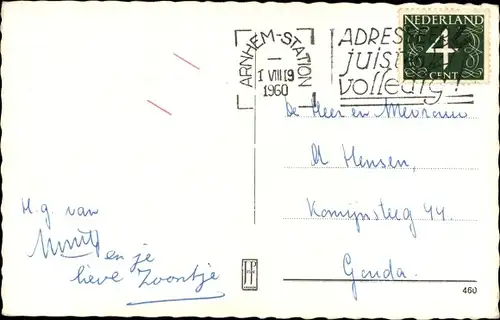 ARNHEM-STATION
1 VIII 19
1960
ADRESSEER
juist en
volledig!
NEDERLAND
4
CENT
De Heer en Mevrouw
M Hensen,
Konijnsteeg 44.
Gouda.
H.g. van
en je
lieve Zoontje
460